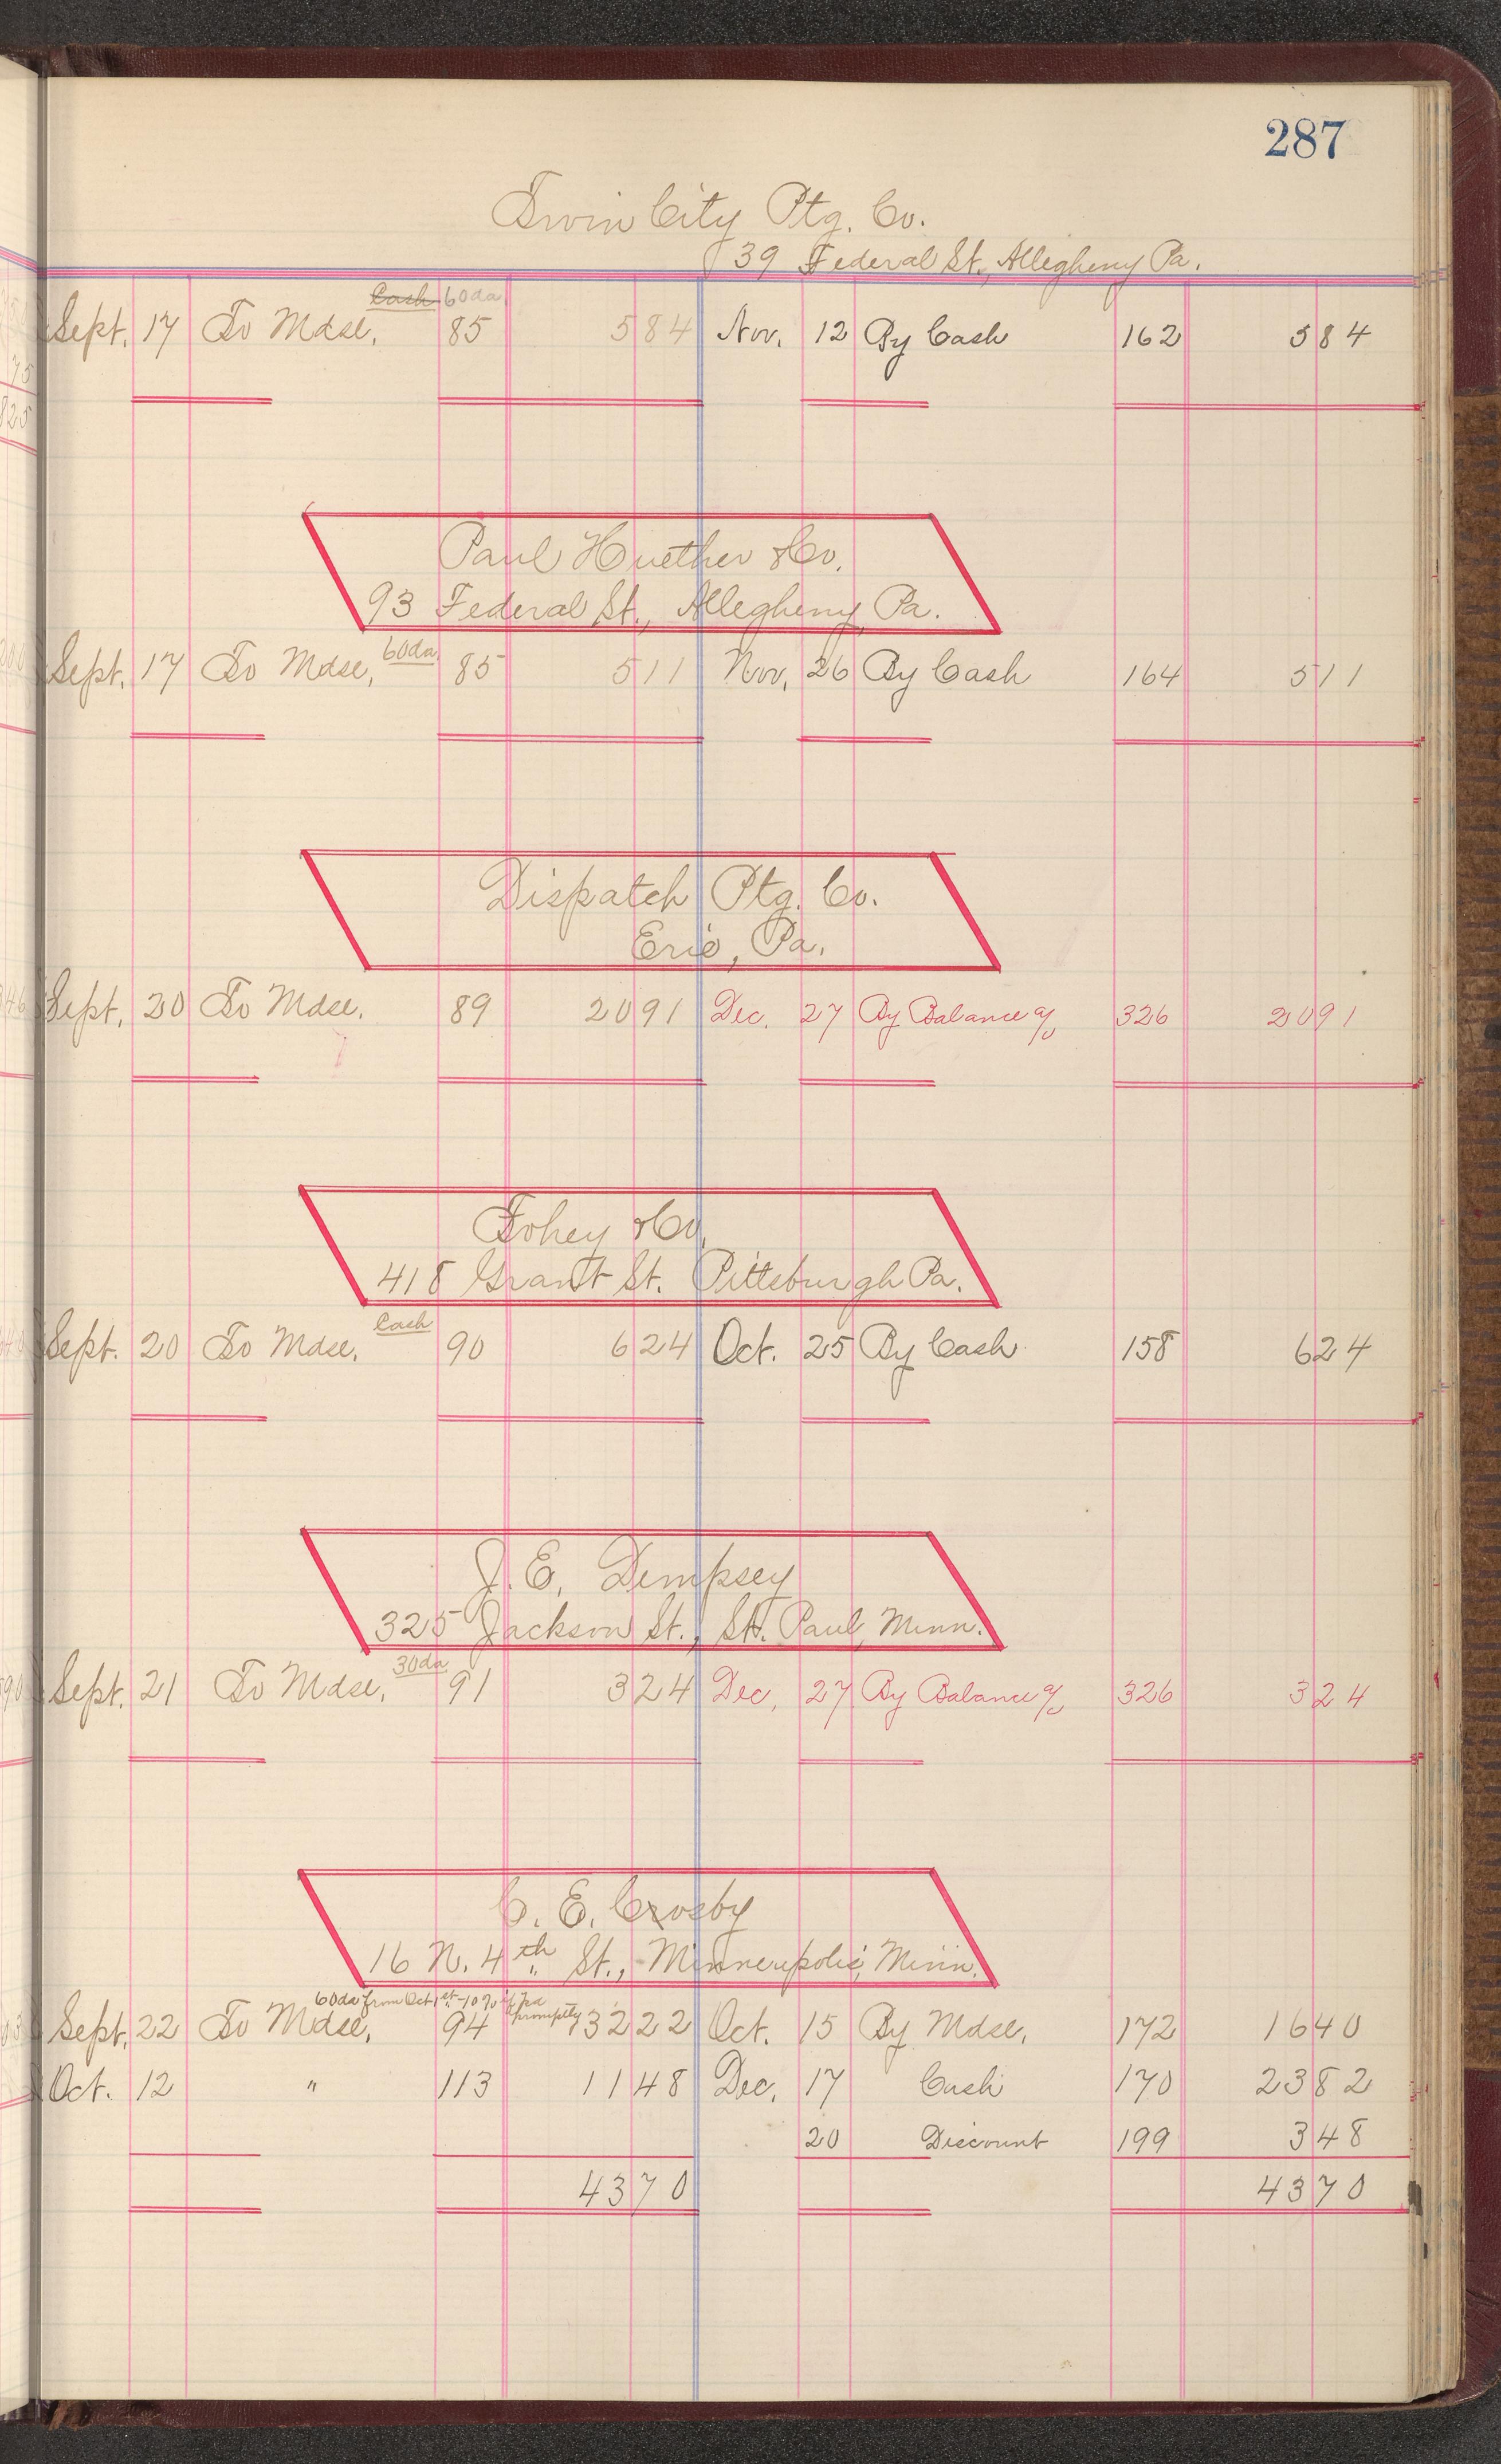 287
Twin City Ptg. Co.
39 Federal St., Allegheny Pa.
Cash 60da.
Sept. 17 To Mdse, 85 584 Nov. 12 By Cash 162 584
Paul Huether & Co.
93 Federal St., Allegheny, Pa.
60da.
Sept. 17 To Mdse, 85 511 Nov. 26 By Cash 164 511
Dispatch Ptg. Co.
Erie, Pa.
Sept. 20 To Mdse. 89 2091 Dec. 27 By Balance a/c 326 2091
Tohey & Co.
418 Grant St. Pittsburgh Pa.
Cash
Sept. 20 To Mdse. 90 624 Oct. 25 By Cash 158 624
J. E. Dempsey
325 Jackson St., St. Paul, Minn.
30da.
Sept. 21 To Mdse, 91 324 Dec. 27 By Balance a/c 326 324
C. E. Crosby
16 N. 4th St., Minneapolis, Minn.
60da from Oct 1st - 10% if pd promptly
Sept. 22 To Mdse, 94 3222 Oct. 15 By Mdse. 172 1640
Oct. 12 " 113 1148 Dec. 17 Cash 170 2382
20 Discount 199 348
4370 4370